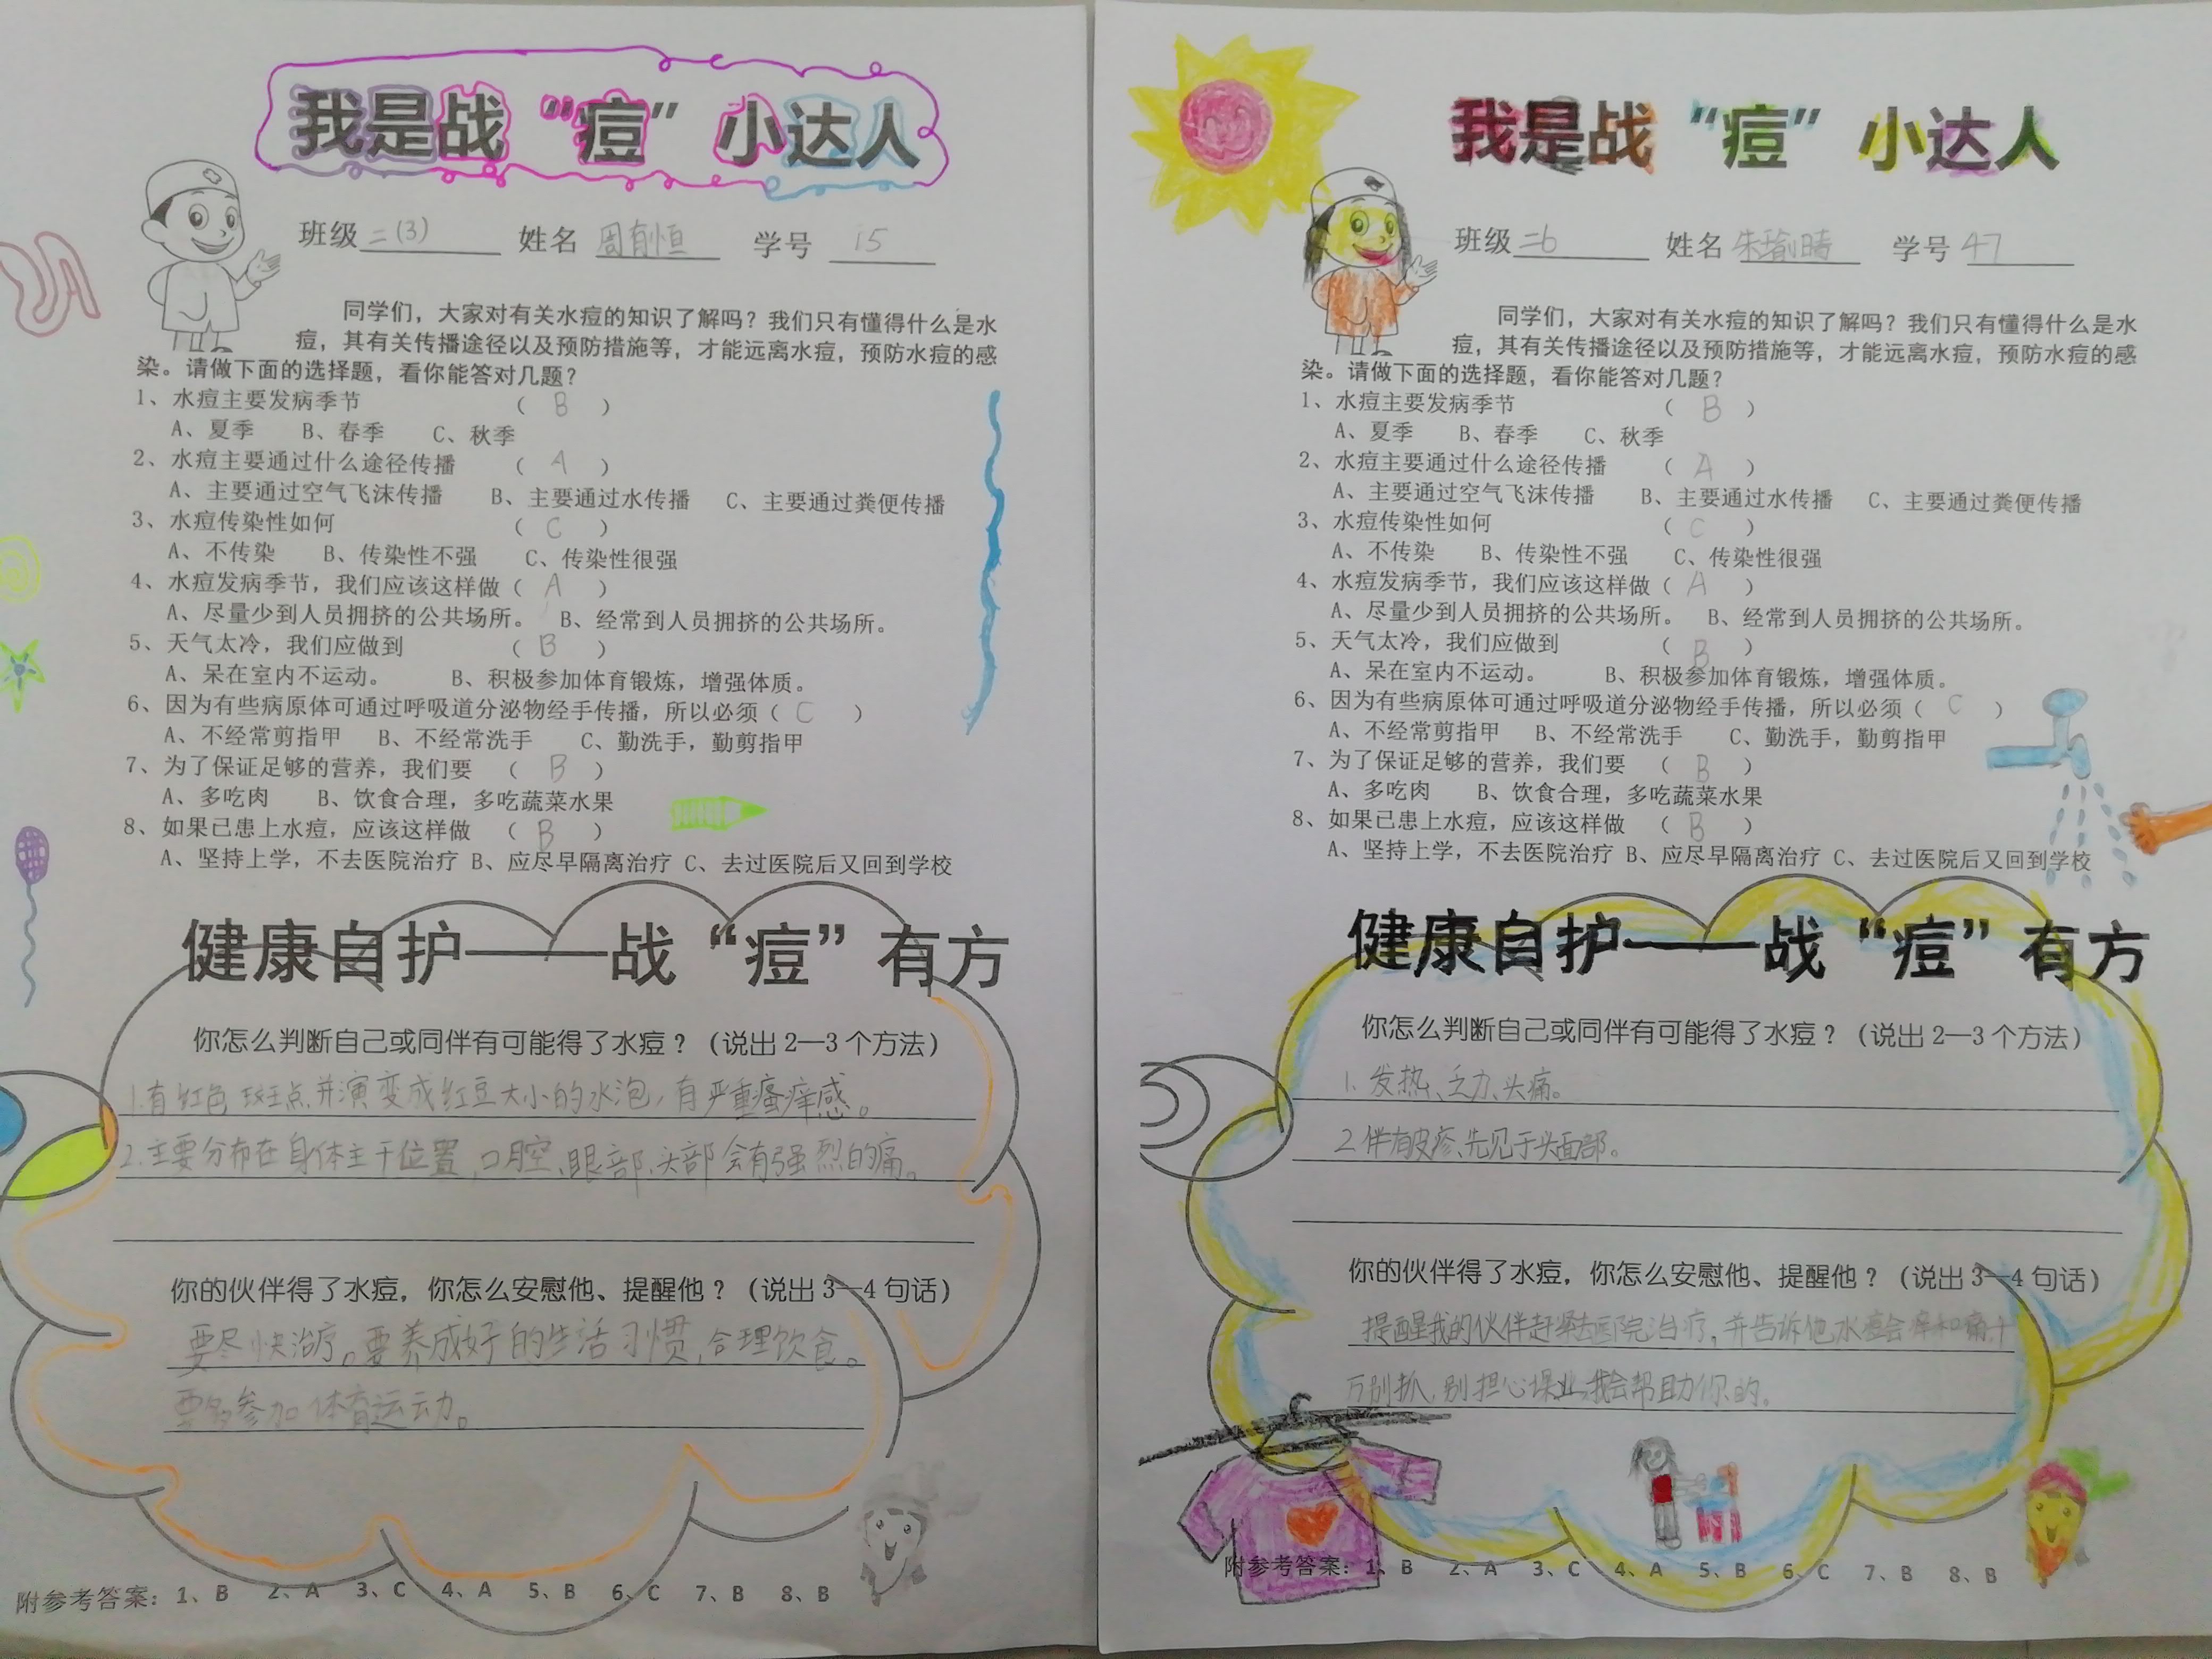 我是战“痘”小达人
班级 二(3) 姓名 周有恒 学号 15
同学们，大家对有关水痘的知识了解吗？我们只有懂得什么是水
痘，其有关传播途径以及预防措施等，才能远离水痘，预防水痘的感
染。请做下面的选择题，看你能答对几题？
1、水痘主要发病季节 （ B ）
A、夏季 B、春季 C、秋季
2、水痘主要通过什么途径传播 （ A ）
A、主要通过空气飞沫传播 B、主要通过水传播 C、主要通过粪便传播
3、水痘传染性如何 （ C ）
A、不传染 B、传染性不强 C、传染性很强
4、水痘发病季节，我们应该这样做（ A ）
A、尽量少到人员拥挤的公共场所。 B、经常到人员拥挤的公共场所。
5、天气太冷，我们应做到 （ B ）
A、呆在室内不运动。 B、积极参加体育锻炼，增强体质。
6、因为有些病原体可通过呼吸道分泌物经手传播，所以必须（ C ）
A、不经常剪指甲 B、不经常洗手 C、勤洗手，勤剪指甲
7、为了保证足够的营养，我们要 （ B ）
A、多吃肉 B、饮食合理，多吃蔬菜水果
8、如果已患上水痘，应该这样做 （ B ）
A、坚持上学，不去医院治疗 B、应尽早隔离治疗 C、去过医院后又回到学校
健康自护——战“痘”有方
你怎么判断自己或同伴有可能得了水痘？（说出2—3个方法）
1.有红色斑点并演变成红豆大小的水泡，有严重瘙痒感。
2.主要分布在身体主干位置、口腔、眼部、头部会有强烈的痛。
你的伙伴得了水痘，你怎么安慰他、提醒他？（说出3—4句话）
要尽快治疗。要养成好的生活习惯，合理饮食。
要多参加体育运动。
附参考答案：1、B 2、A 3、C 4、A 5、B 6、C 7、B 8、B
我是战“痘”小达人
班级 二6 姓名 朱瑜晴 学号 47
同学们，大家对有关水痘的知识了解吗？我们只有懂得什么是水
痘，其有关传播途径以及预防措施等，才能远离水痘，预防水痘的感
染。请做下面的选择题，看你能答对几题？
1、水痘主要发病季节 （ B ）
A、夏季 B、春季 C、秋季
2、水痘主要通过什么途径传播 （ A ）
A、主要通过空气飞沫传播 B、主要通过水传播 C、主要通过粪便传播
3、水痘传染性如何 （ C ）
A、不传染 B、传染性不强 C、传染性很强
4、水痘发病季节，我们应该这样做（ A ）
A、尽量少到人员拥挤的公共场所。 B、经常到人员拥挤的公共场所。
5、天气太冷，我们应做到 （ B ）
A、呆在室内不运动。 B、积极参加体育锻炼，增强体质。
6、因为有些病原体可通过呼吸道分泌物经手传播，所以必须（ C ）
A、不经常剪指甲 B、不经常洗手 C、勤洗手，勤剪指甲
7、为了保证足够的营养，我们要 （ B ）
A、多吃肉 B、饮食合理，多吃蔬菜水果
8、如果已患上水痘，应该这样做 （ B ）
A、坚持上学，不去医院治疗 B、应尽早隔离治疗 C、去过医院后又回到学校
健康自护——战“痘”有方
你怎么判断自己或同伴有可能得了水痘？（说出2—3个方法）
1.发热、乏力、头痛。
2.伴有皮疹、先见于头面部。
你的伙伴得了水痘，你怎么安慰他、提醒他？（说出3—4句话）
提醒我的伙伴赶紧去医院治疗，并告诉他水痘会痒和痛，千
万别抓，别担心课业，我会帮助你的。
附参考答案：1、B 2、A 3、C 4、A 5、B 6、C 7、B 8、B